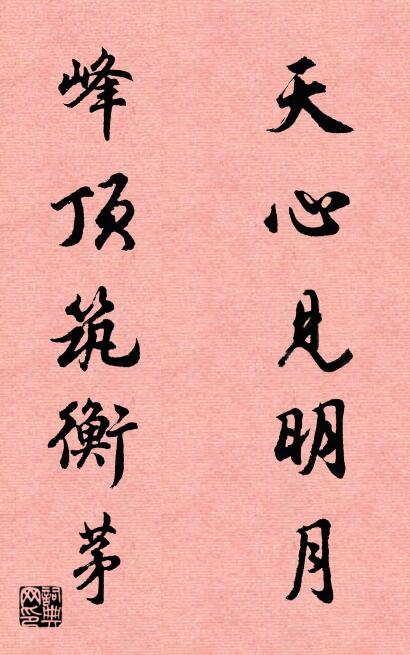 天心見明月
峰顶筑衡茅
詞典网印